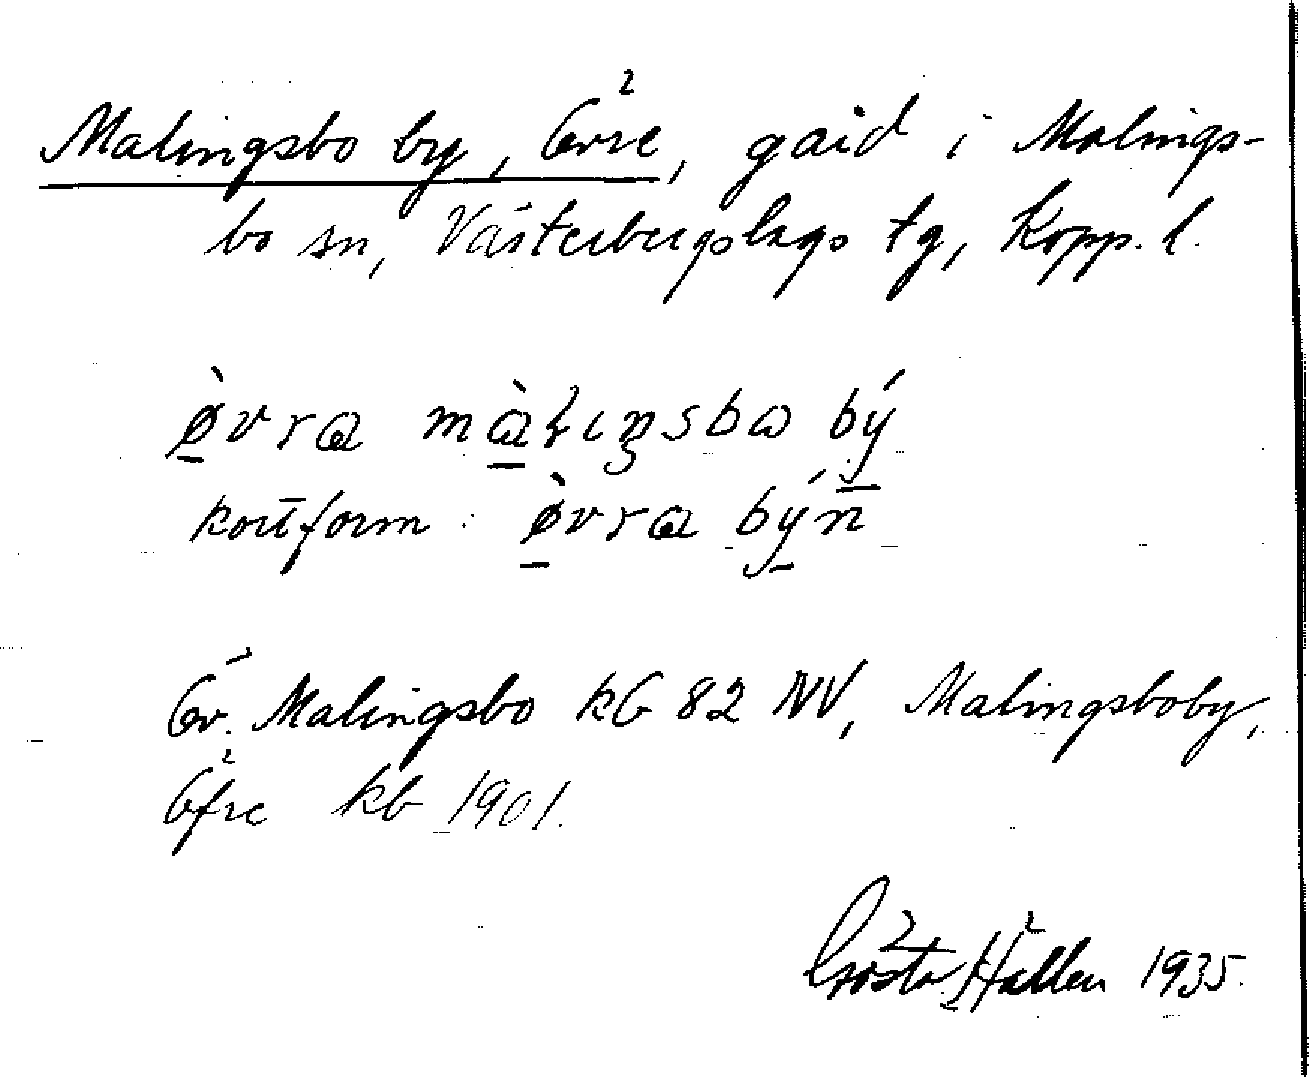 Malingsbo by, Övre, gård i Malings-
bo sn, Västerbergslags tg, Kopp. l.
ø̀vra màlıŋsbo bý
kortform: ø̀vra býn̄
Öv. Malingsbo kb 82 NV, Malingsboby,
Öfre kb 1901.
Gösta Hallen 1935.